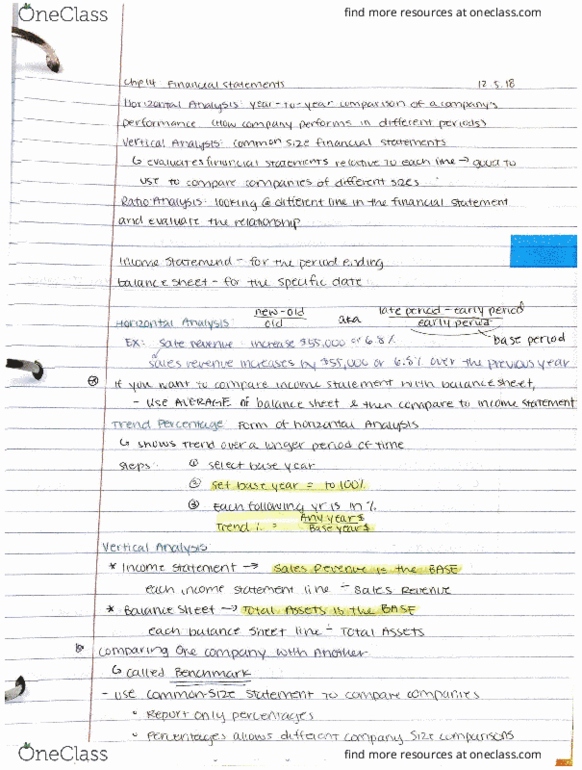 OneClass
find more resources at oneclass.com
Chp 14 Financial Statements 12.5.18
Horizontal Analysis: year-to-year comparison of a company's
performance (How company performs in different periods)
Vertical Analysis: common size financial statements
↳ evaluates financial statements relative to each line → good to
use to compare companies of different sizes
Ratio Analysis: looking @ different line in the financial statement
and evaluate the relationship
Income Statement - for the period ending
balance sheet - for the specific date
Horizontal Analysis: new-old / old aka late period - early period / early period
base period
EX: Sale revenue increase $55,000 or 6.8%
sales revenue increases by $55,000 or 6.8% over the previous year
If you want to compare income statement with balance sheet,
- USE AVERAGE of balance sheet & then compare to income statement
Trend Percentage: Form of horizontal Analysis
↳ shows trend over a longer period of time
steps: ① select base year
② set base year = to 100%
③ Each following yr is in %
Trend % = Any year $ / Base year $
Vertical Analysis:
* Income statement → Sales Revenue is the BASE
each income statement line ÷ Sales Revenue
* Balance Sheet → TOTAL ASSETS is the BASE
each balance sheet line ÷ TOTAL ASSETS
comparing One company with Another
↳ called Benchmark
- Use common-size statement to compare companies
◦ Report only percentages
◦ Percentages allows different company size comparisons
OneClass
find more resources at oneclass.com